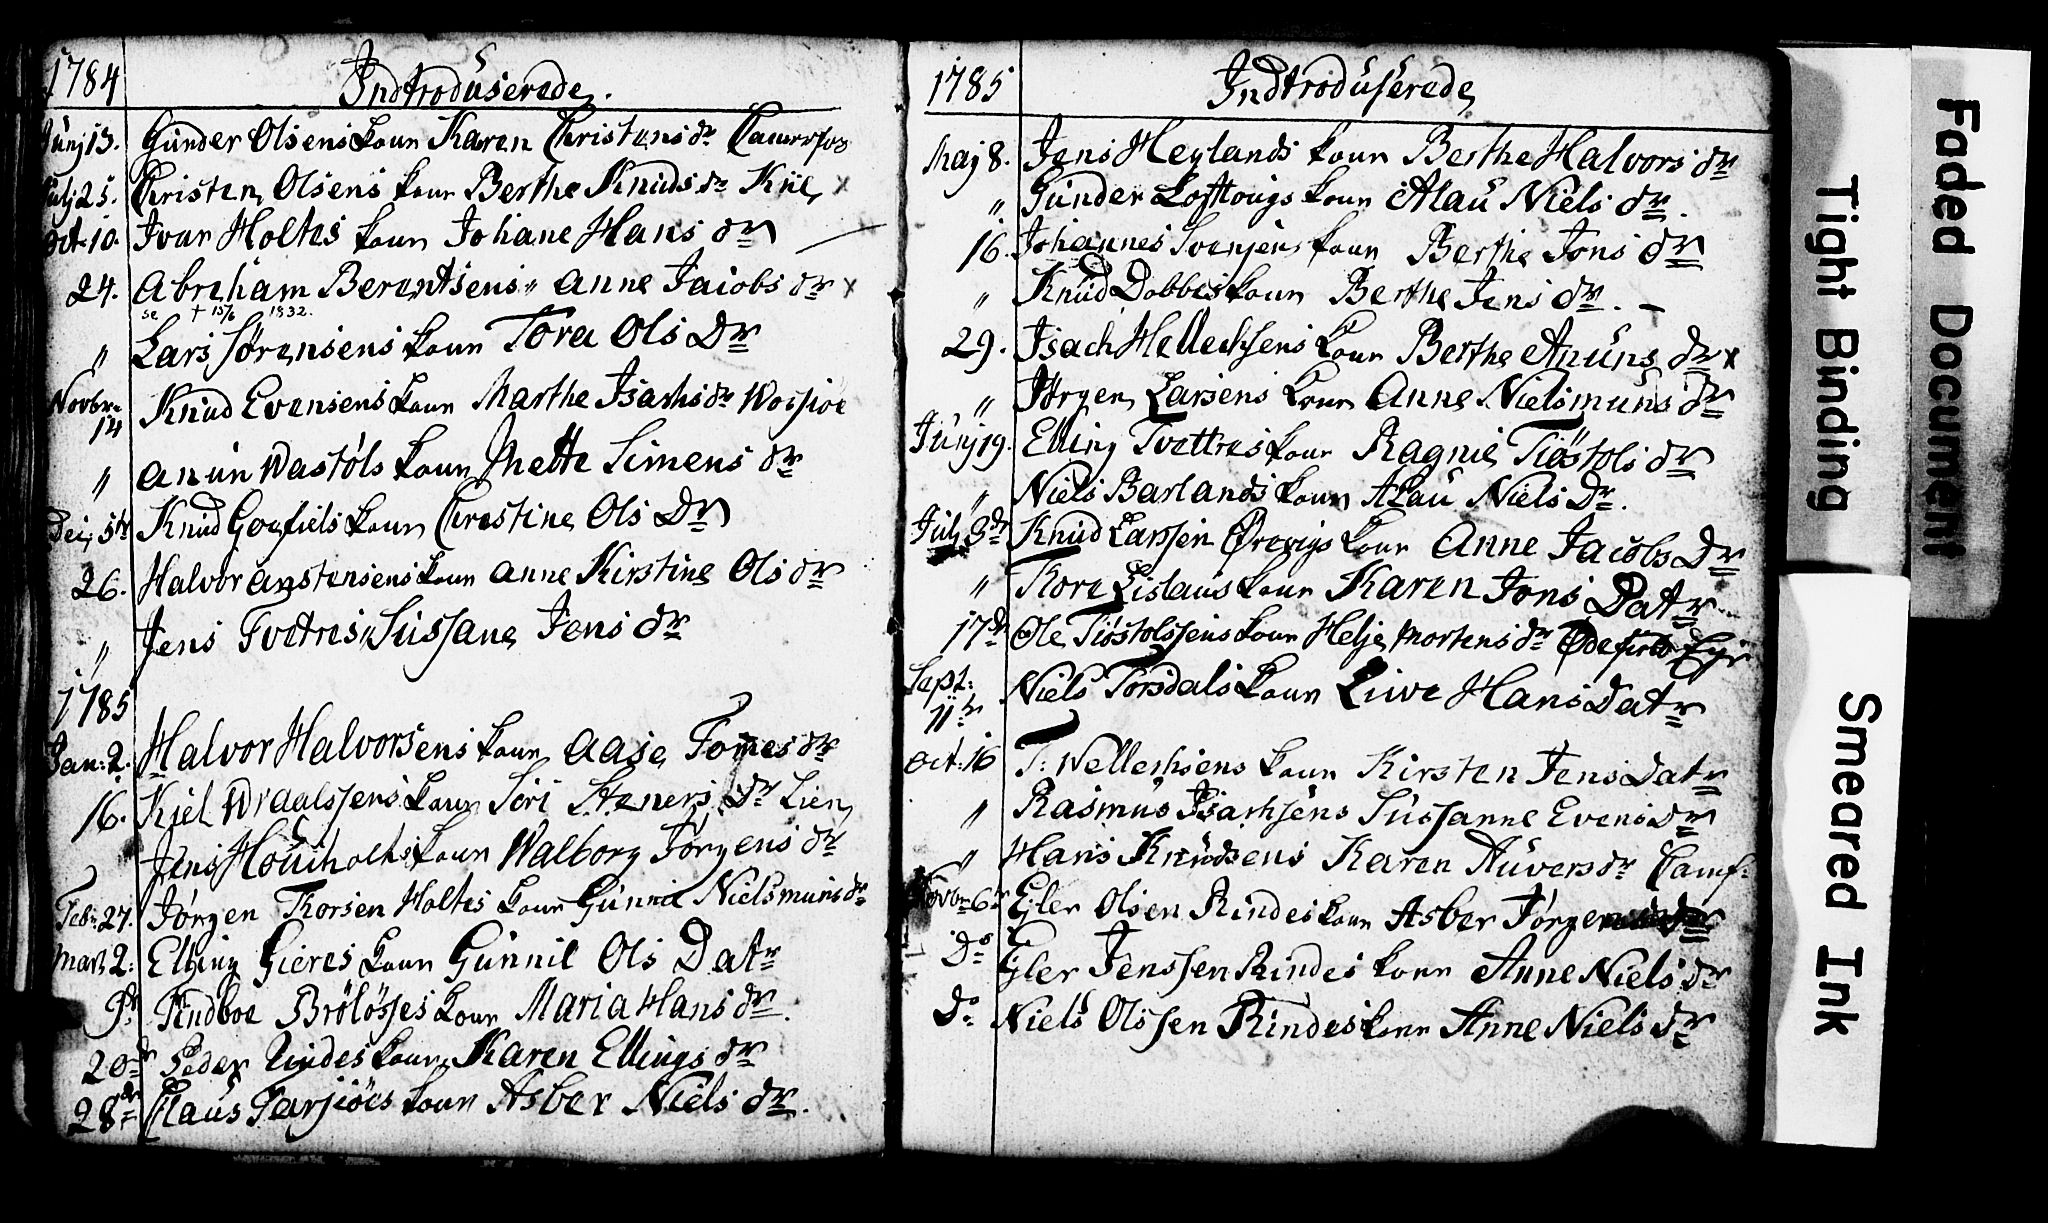 1784 Indtroduserede.
Junj 13. Gunder Olsens koun Karen Christens dr
Julj 25. Christen Olsens koun Berthe Knuds dr Kiil x
Oct. 10. Ivar Holtes koun Johane Hans dr
24. Abraham Berentsens " Anne Jacobs dr x
se + 15/6 1832.
" Lars Sørensens koun Tora Ols Dr
Novbr. 14 Knud Evensens koun Marthe Isachs dr Wosjoe
" Anun Wastøls koun Mette Simens dr
Dec. 5te Knud Goefiels koun Chrestine Ols Dr
26. Halvor Anstensens koun Anne Kirstine Ols dr
" Jens Tvetres " Sussane Jens dr
1785
Jan: 2. Halvor Halvorsens koun Aase Tomes dr
16. Kiel Wraalssens koun Siri Steners Dr Lien
Jens Houcholts koun Walborg Jørgens dr
Febr: 27. Jørgen Thorsen Holtes koun Gunnil Nielsmuns dr
Mart 2: Elling Gieres koun Gunnil Ols Datr
9de Findboe Brøløsses koun Maria Hans dr.
20de Peder Lindes koun Karen Ellings dr
28de Claus Tarjøes koun Asber Niels dr.
1785 Indtroduserede
Maj 8. Jens Heylands koun Berthe Halvors dr
" Gunder Lofttougs koun Alau Niels dr.
16. Johannes Svensens koun Berthe Jons dr
" Knud Dobbes koun Berthe Jens dr. -
29. Isach Hellechsens koun Berthe Anuns dr x
" Jørgen Larsens koun Anne Nielsmuns dr
Junj 19. Elling Tvettres koun Ragnil Tiøstols dr
" Niels Barlands koun Alau Niels Dr.
Julj 3de Knud Larssen Ørevigs koun Anne Jacobs Dr
" Tore Lislaus koun Karen Jons Datr
17de Ole Tiøstolssens koun Helje Mortens dr Ødefield Eje
Sept: 11te Niels Torsdals koun Liwe Hans Datr
Oct: 16 T: Wellechsens koun Kirsten Jens Datr
" Rasmus Isachsens Sussanne Evens Dr
" Hans Knudsens Karen Auvers dr Camf:
Novbr 6te Ejler Olsen Rindes koun Asber Jørgens dr
Do Ejler Jenssen Rindes koun Anne Niels dr
Do Niels Olssen Rindes koun Anne Niels dr
Faded Document
Tight Binding
Smeared Ink